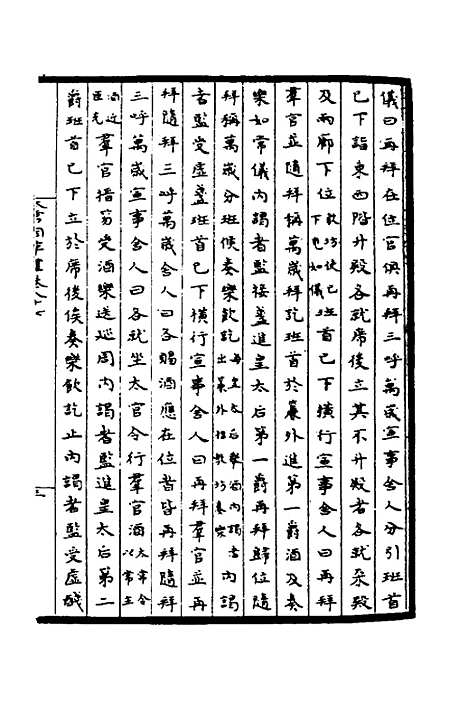 儀曰再拜在位官俱再拜三呼萬歲宣事舍人分引班首
已下詣東西階升殿各就席後立其不升殿者各就朵殿
及兩廊下位教坊使已下已如儀班首已下橫行宣事舍人曰再拜
羣官並隨拜稱萬歲拜訖班首於簾外進第一爵酒及奏
樂如常儀內謁者監接盞進皇太后第一爵再拜歸位隨
拜稱萬歲分班俟奏樂飲訖每皇太后舉酒內謁者出簾外指教坊奏樂內謁
者監受虛盞班首已下橫行宣事舍人曰再拜羣官並再
拜隨拜三呼萬歲舍人曰各賜酒應在位者皆再拜隨拜
三呼萬歲宣事舍人曰各就坐太官令行羣官酒太常令以常主
酒近臣充羣官搢笏受酒樂送巡周內謁者監進皇太后第二
爵班首已下立於席後俟奏樂飲訖止內謁者監受虛醆
太常因革禮卷八十
三